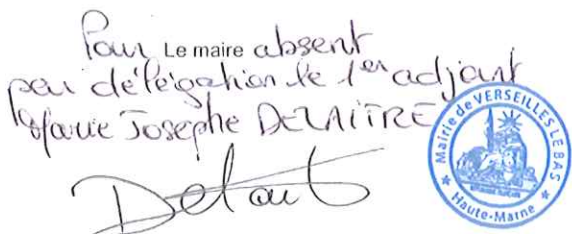 Pour Le maire absent
par délégation le 1er adjoint
Marie Josephe DELAITRE
Mairie de VERSEILLES LE BAS
* Haute-Marne *